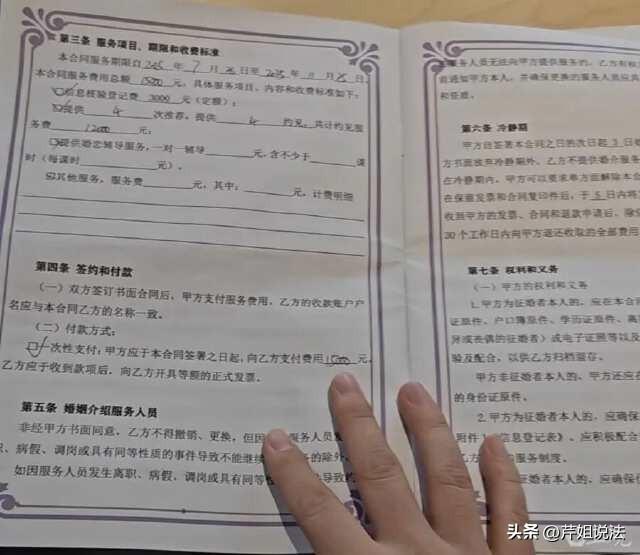 第三条 服务项目、期限和收费标准
本合同服务期限自2025年7月 日至2025年11月25日,
本合同服务费用总额15000元。具体服务项目、内容和收费标准如下:
信息核验登记费3000元(定额);
提供4次推荐,提供4约见,共计约见服
务费12000元;
提供婚恋辅导服务,一对一辅导 元,含不少于 课
时(每课时 元)。
其他服务,服务费 元,其中: 元,计费明细
第四条 签约和付款
(一)双方签订书面合同后,甲方支付服务费用,乙方的收款账户户
名应与本合同乙方的名称一致。
(二)付款方式:
一次性支付:甲方应于本合同签署之日起,向乙方支付费用15000元,
乙方应于收到款项后,向乙方开具等额的正式发票。
第五条 婚姻介绍服务人员
非经甲方书面同意,乙方不得撤销、更换,但因 服务人员
、病假、调岗或具有同等性质的事件导致不能继续 的除外
如因服务人员发生离职、病假、调岗或具有同等性 导致
服务人员无法向甲方提供服务的,乙方有权
前通知甲方本人,并确保更换的服务人员应具
和资质。
第六条 冷静期
甲方自签署本合同之日的次日起3日
方书面放弃冷静期外,乙方不提供婚介服务
在冷静期内,甲方可以要求单方面解除本合
在保留发票和合同复印件后,于5日内将
收到甲方的发票、合同和退款申请后,除
30个工作日内向甲方退还收取的全部费用
第七条 权利和义务
(一)甲方的权利和义务
1.甲方为征婚者本人的,应在本合
证原件、户口簿原件、学历证原件、离
牙或丧偶的征婚者)或电子证照等以及
验及配合,以供乙方归档留存。
甲方非征婚者本人的,甲方还应
的身份证原件。
2.甲方为征婚者本人的,应确保
附件1 信息登记表》,应积极配合
乙方 的服务制度。
征婚者本人的,应确保
头条 @芹姐说法